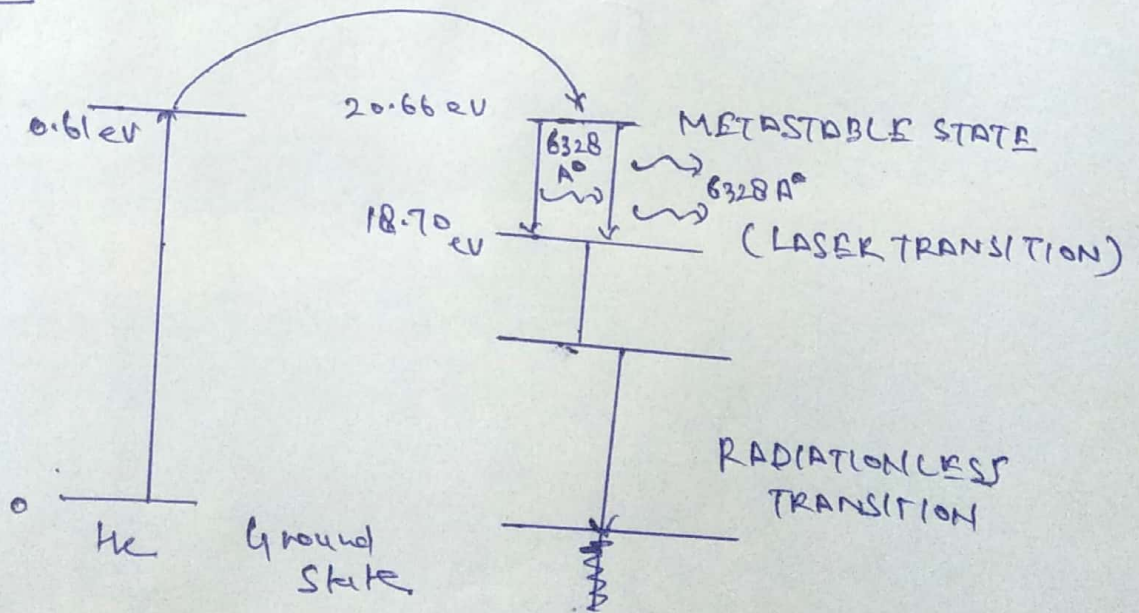 20.66 ev
0.61 ev
METASTABLE STATE
6328
A°
6328 A°
18.70
ev
(LASER TRANSITION)
RADIATIONLESS
TRANSITION
0
He
Ground
State